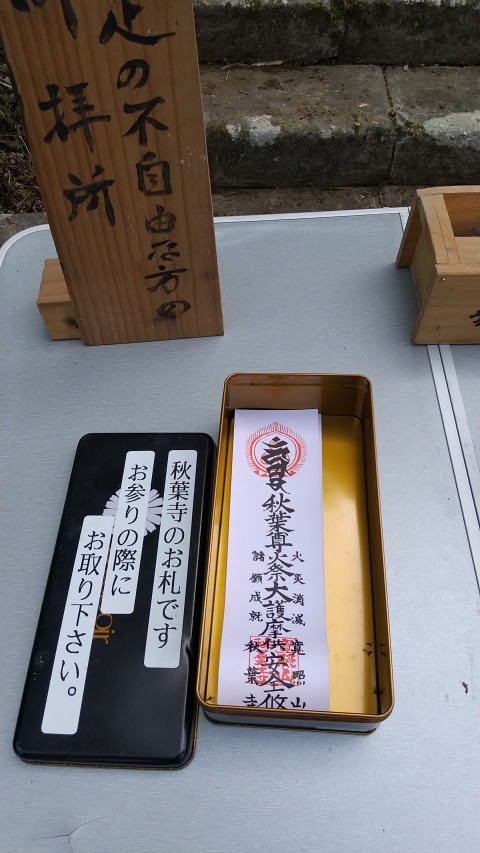 足の不自由な方の
拝所
秋葉寺のお札です
お参りの際に
お取り下さい。
秋葉尊火祭大護摩供安全攸
火災消滅
諸願成就
寛照山
秋葉寺